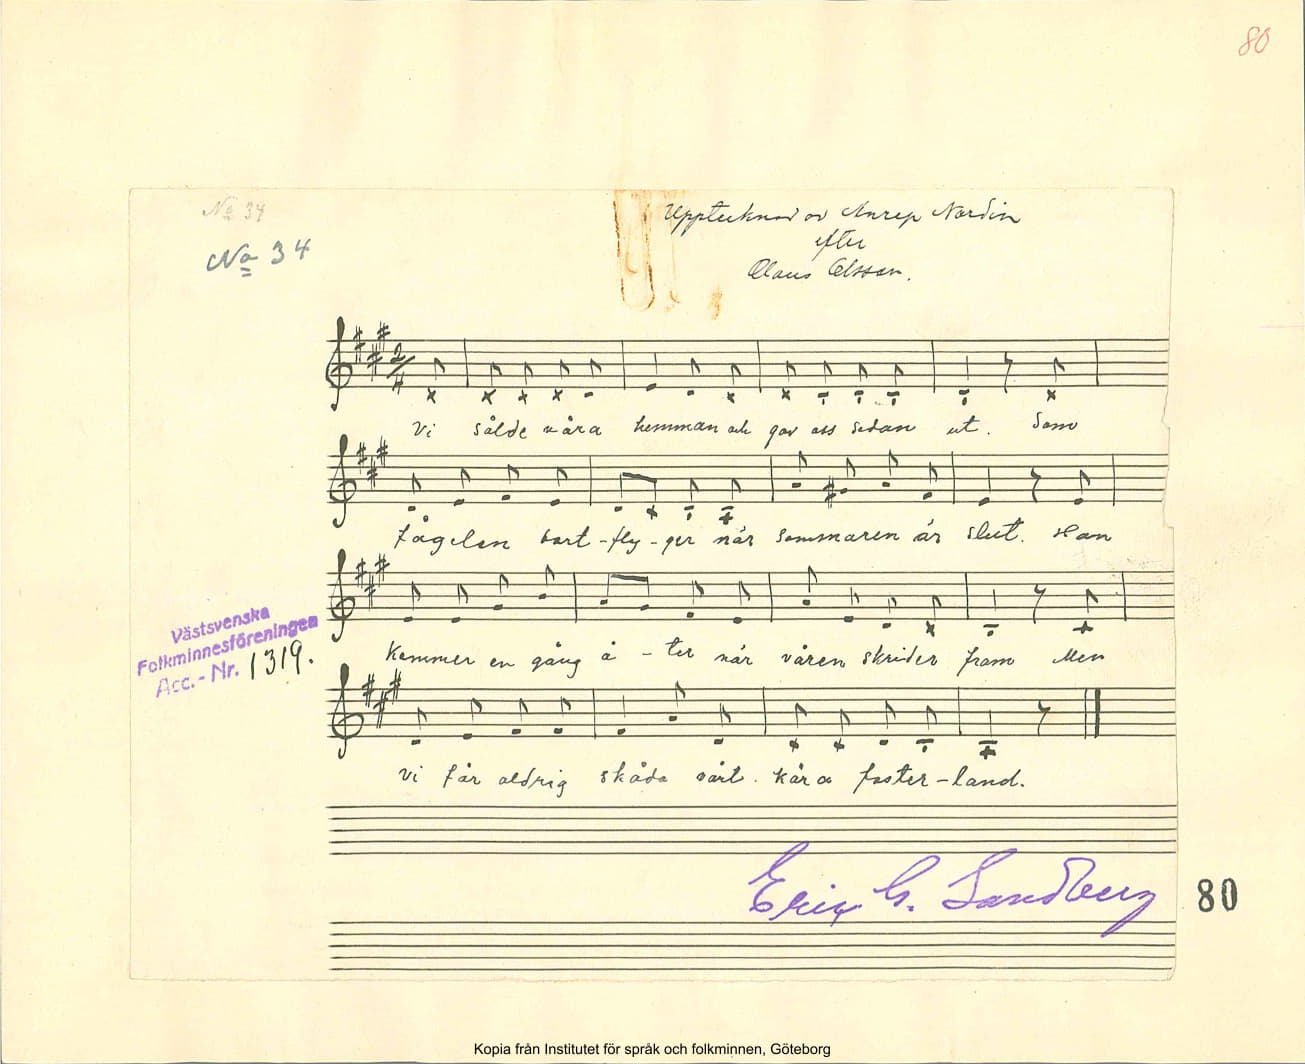 80
No 34
No 34
Upptecknad av Anrep Nordin
efter
Claus Olsson.
2/4
Vi sålde våra hemman och gav oss sedan ut. Som
fågelen bort-fly-ger när sommaren är slut. Han
Kommer en gång å-ter när våren skrider fram Men
vi får aldrig skåda vårt kära foster-land.
Västsvenska
Folkminnesföreningen
Acc.-Nr. 1319.
Eric G. Sandberg
80
Kopia från Institutet för språk och folkminnen, Göteborg